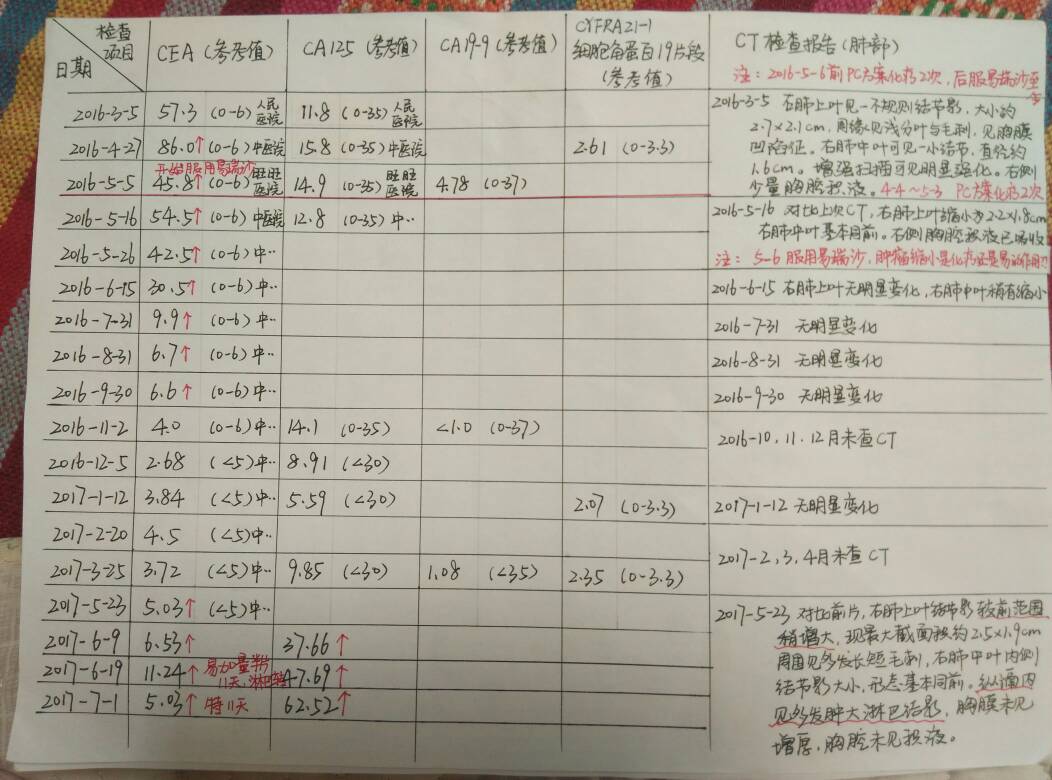 检查项目
日期
CEA (参考值)
CA125 (参考值)
CA19-9 (参考值)
CYFRA21-1
细胞角蛋白19片段
(参考值)
CT检查报告 (肺部)
注: 2016-5-6前PC方案化疗2次, 后服易瑞沙至今
2016-3-5 57.3 (0-6) 人民医院 11.8 (0-35) 人民医院
2016-4-27 86.0↑ (0-6) 中医院 15.8 (0-35) 中医院 2.61 (0-3.3)
开始服用易瑞沙
2016-5-5 45.8↑ (0-6) 旺旺医院 14.9 (0-35) 旺旺医院 4.78 (0-37)
2016-3-5 右肺上叶见一不规则结节影, 大小约
2.7×2.1cm, 周缘见浅分叶与毛刺, 见胸膜
凹陷征。右肺中叶可见一小结节, 直径约
1.6cm。增强扫描可见明显强化。右侧
少量胸腔积液。4-4~5-3 PC方案化疗2次
2016-5-16 54.5↑ (0-6) 中医院 12.8 (0-35) 中..
2016-5-26 42.5↑ (0-6) 中..
2016-5-16 对比上次CT, 右肺上叶缩小为2.2×1.8cm
右肺中叶基本同前。右侧胸腔积液已吸收
注: 5-6服用易瑞沙, 肿瘤缩小是化疗还是易的作用?
2016-6-15 30.5↑ (0-6) 中.. 2016-6-15 右肺上叶无明显变化, 右肺中叶稍有缩小
2016-7-31 9.9↑ (0-6) 中.. 2016-7-31 无明显变化
2016-8-31 6.7↑ (0-6) 中.. 2016-8-31 无明显变化
2016-9-30 6.6↑ (0-6) 中.. 2016-9-30 无明显变化
2016-11-2 4.0 (0-6) 中.. 14.1 (0-35) <1.0 (0-37) 2016-10, 11, 12月未查CT
2016-12-5 2.68 (<5) 中.. 8.91 (<30)
2017-1-12 3.84 (<5) 中.. 5.59 (<30) 2.07 (0-3.3) 2017-1-12 无明显变化
2017-2-20 4.5 (<5) 中.. 2017-2, 3, 4月未查CT
2017-3-25 3.72 (<5) 中.. 9.85 (<30) 1.08 (<35) 2.35 (0-3.3)
2017-5-23 5.03↑ (<5) 中..
2017-6-9 6.53↑ 37.66↑
2017-6-19 11.24↑ 易加量 11天, 47.69↑
2017-7-1 5.03↑ 特11天 62.52↑
2017-5-23 对比前片, 右肺上叶结节影较前范围
稍增大, 现最大截面积约2.5×1.9cm
周围见多发长短毛刺, 右肺中叶内侧
结节影大小, 形态基本同前。纵隔内
见多发肿大淋巴结影, 胸膜未见
增厚, 胸腔未见积液。